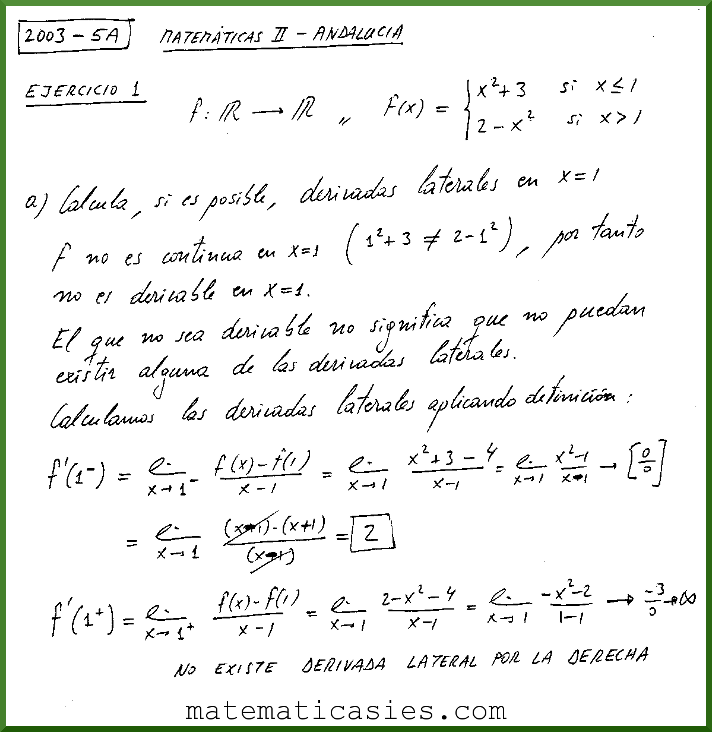 2003 - 5A MATEMÁTICAS II - ANDALUCIA
EJERCICIO 1
f: ℝ → ℝ ,, f(x) = { x²+3 si x≤1
2-x² si x>1
a) Calcula, si es posible, derivadas laterales en x=1
f no es continua en x=1 (1²+3 ≠ 2-1²), por tanto
no es derivable en x=1.
El que no sea derivable no significa que no puedan
existir alguna de las derivadas laterales.
Calculamos las derivadas laterales aplicando definición:
f'(1⁻) = lim x→1⁻ (f(x)-f(1))/(x-1) = lim x→1 (x²+3-4)/(x-1) = lim x→1 (x²-1)/(x-1) → [0/0]
= lim x→1 ((x-1)·(x+1))/(x-1) = 2
f'(1⁺) = lim x→1⁺ (f(x)-f(1))/(x-1) = lim x→1 (2-x²-4)/(x-1) = lim x→1 (-x²-2)/(1-1) → -3/0 → ∞
NO EXISTE DERIVADA LATERAL POR LA DERECHA
matematicasies.com